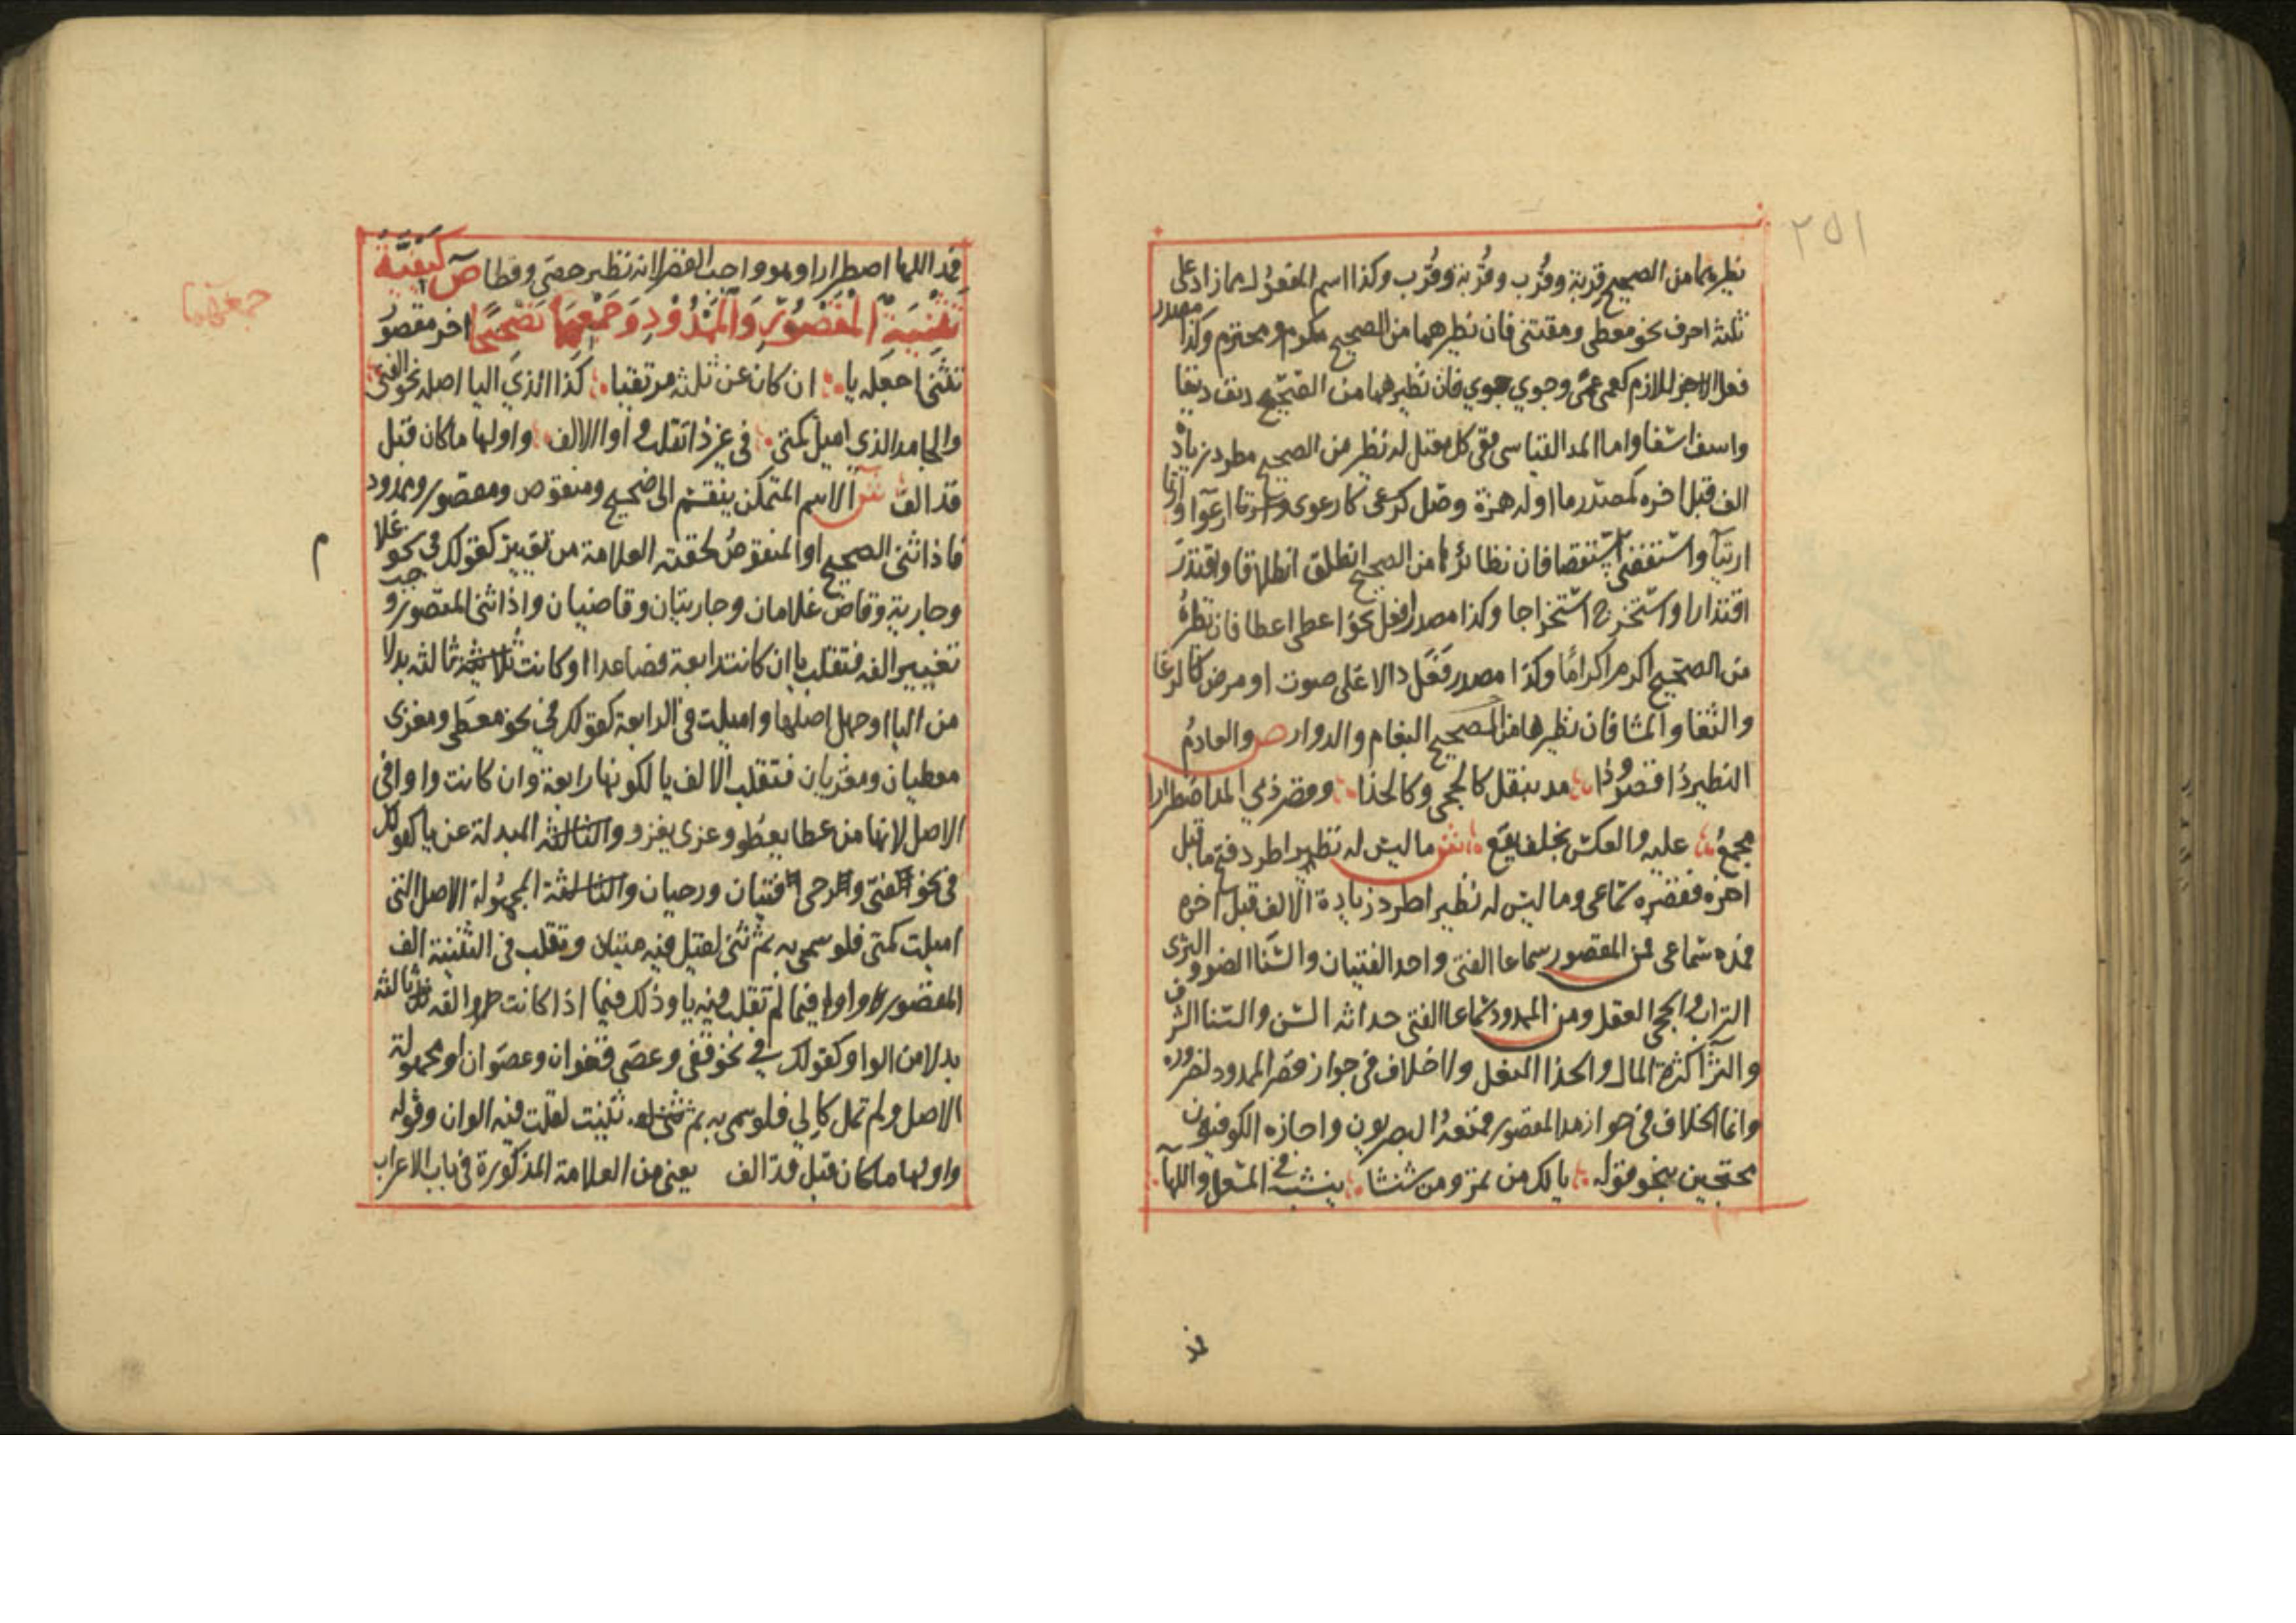 ٢٥١
نظيرهما من الصحيح قربة وقرب وقربة وقرب وكذا اسم المفعول مما زاد على
ثلثة احرف نحو معطى ومقتنى فان نظيرهما من الصحيح مكرم ومحترم وكذا مصدر
فعل اللازم كعمى عمى وجوي جوي فان نظيرهما من الصحيح دنف دنفا
واسف اسفا واما المد القياسى ففى كل معتل له نظير من الصحيح مطرد زيادة
الف قبل اخره كمصدر ما اوله همزة وصل كرعى كارعوى ارعوآ وارتاى
ارتيآ واستقصى استقصا فان نظائرها من الصحيح انطلق انطلاقا واقتدر
اقتدارا واستخرج استخراجا وكذا مصدر افعل نحو اعطى اعطا فان نظيره
من الصحيح اكرم اكراما وكذا مصدر فعل دالا على صوت او مرض كالرغا
والثغا والمشا فان نظيرها من الصحيح البغام والدوار ص والعادم
النظير ذا قصر وذا مد بنقل كالحجى وكالحذا وقصر ذي المد اضطرارا
مجمع عليه والعكس بخلف يقع ش ما ليس له نظير اطرد فتح ما قبل
اخره فقصره سماعى وما ليس له نظير اطرد زيادة الالف قبل اخره
فمده سماعى فمن المقصور سماعا الفتى واحد الفتيان والسنا الضوو والثرى
التراب والحجى العقل ومن الممدود سماعا الفتى حداثه السن والسنا الشرف
والثرآ كثرة المال والحذا النعل ولا خلاف في جواز قصر الممدود لضروره
وانما الخلاف في جواز مد المقصور فمنعه البصريون واجازه الكوفيون
محتجين بنحو قوله يا لك من تمر ومن شيشا ينشب في المسعل واللهآ
فمد
فمد اللها اضطرارا وهو واجب القصر لانه نظير حصى وقطا ص كيفية
تثنية المقصور والممدود وجمعهما تصحيحا اخر مقصور
جمعهما
تثنى اجعله يا ان كان عن ثلثة مرتقيا كذا الذي اليا اصله نحو الفتى
والجامد الذي اميل كمتى في غير ذا تقلب واوا الالف واولها ما كان قبل
قد الف ش الاسم المتمكن ينقسم الى صحيح ومنقوص ومقصور وممدود
فاذا ثنى الصحيح او المنقوص لحقته العلامة من تغيير كقولك في نحو غلام
وجارية وقاض غلامان وجاريتان وقاضيان واذا ثنى المقصور وجب
تغيير الفه فتقلب يا ان كانت رابعة فصاعدا او كانت ثالثه بدلا
من اليا او جهل اصلها واميلت في الرابعة كقولك في نحو معطى ومغزى
معطيان ومغزيان فتقلب الالف يا لكونها رابعة وان كانت واوا في
الاصل لانها من عطا يعطو وغزى يغزو والثالثه المبدلة عن يا كقولك
في نحو الفتى والرحى فتيان ورحيان والثالثة المجهولة الاصل التي
اميلت كمتى فلو سمى به ثم ثنى لقيل فيه متيان وتقلب في التثنية الف
المقصور واوا فيما لم تقلب فيه يا وذلك فيما اذا كانت الفه ثالثه
بدلا من الواو كقولك في نحو قفى وعصى قفوان وعصوان او مجهولة
الاصل ولم تمل كالي فلو سمى به ثم ثنيت لقلت فيه الوان وقوله
واولها ما كان قبل قد الف يعني من العلامة المذكورة في باب الاعراب